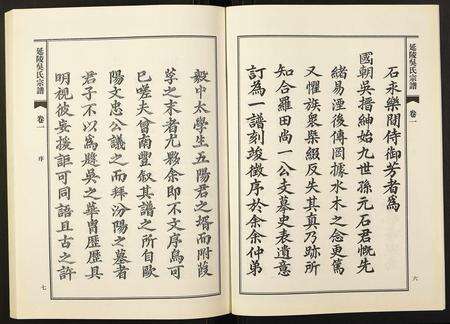 延陵吳氏宗譜
卷一
六
石永樂間侍御芳者為
國朝吳搢紳始九世孫元石君慨先
緒易湮後傳罔據水木之念更篤
又懼族衆槩綴反失其真乃跡所
知合羅田尚一公文墓史表遺意
訂為一譜刻竣徵序於余余仲弟
毅中太學生五陽君之壻而附葭
莩之末者尤夥余即不文序烏可
已嗟夫曾南豐叙其譜之所自歐
陽文忠公議之而拜汾陽之墓者
君子不以為吳之華冑歷歷具
明視彼妄援詎可同語且古之許
延陵吳氏宗譜
卷一
序
七